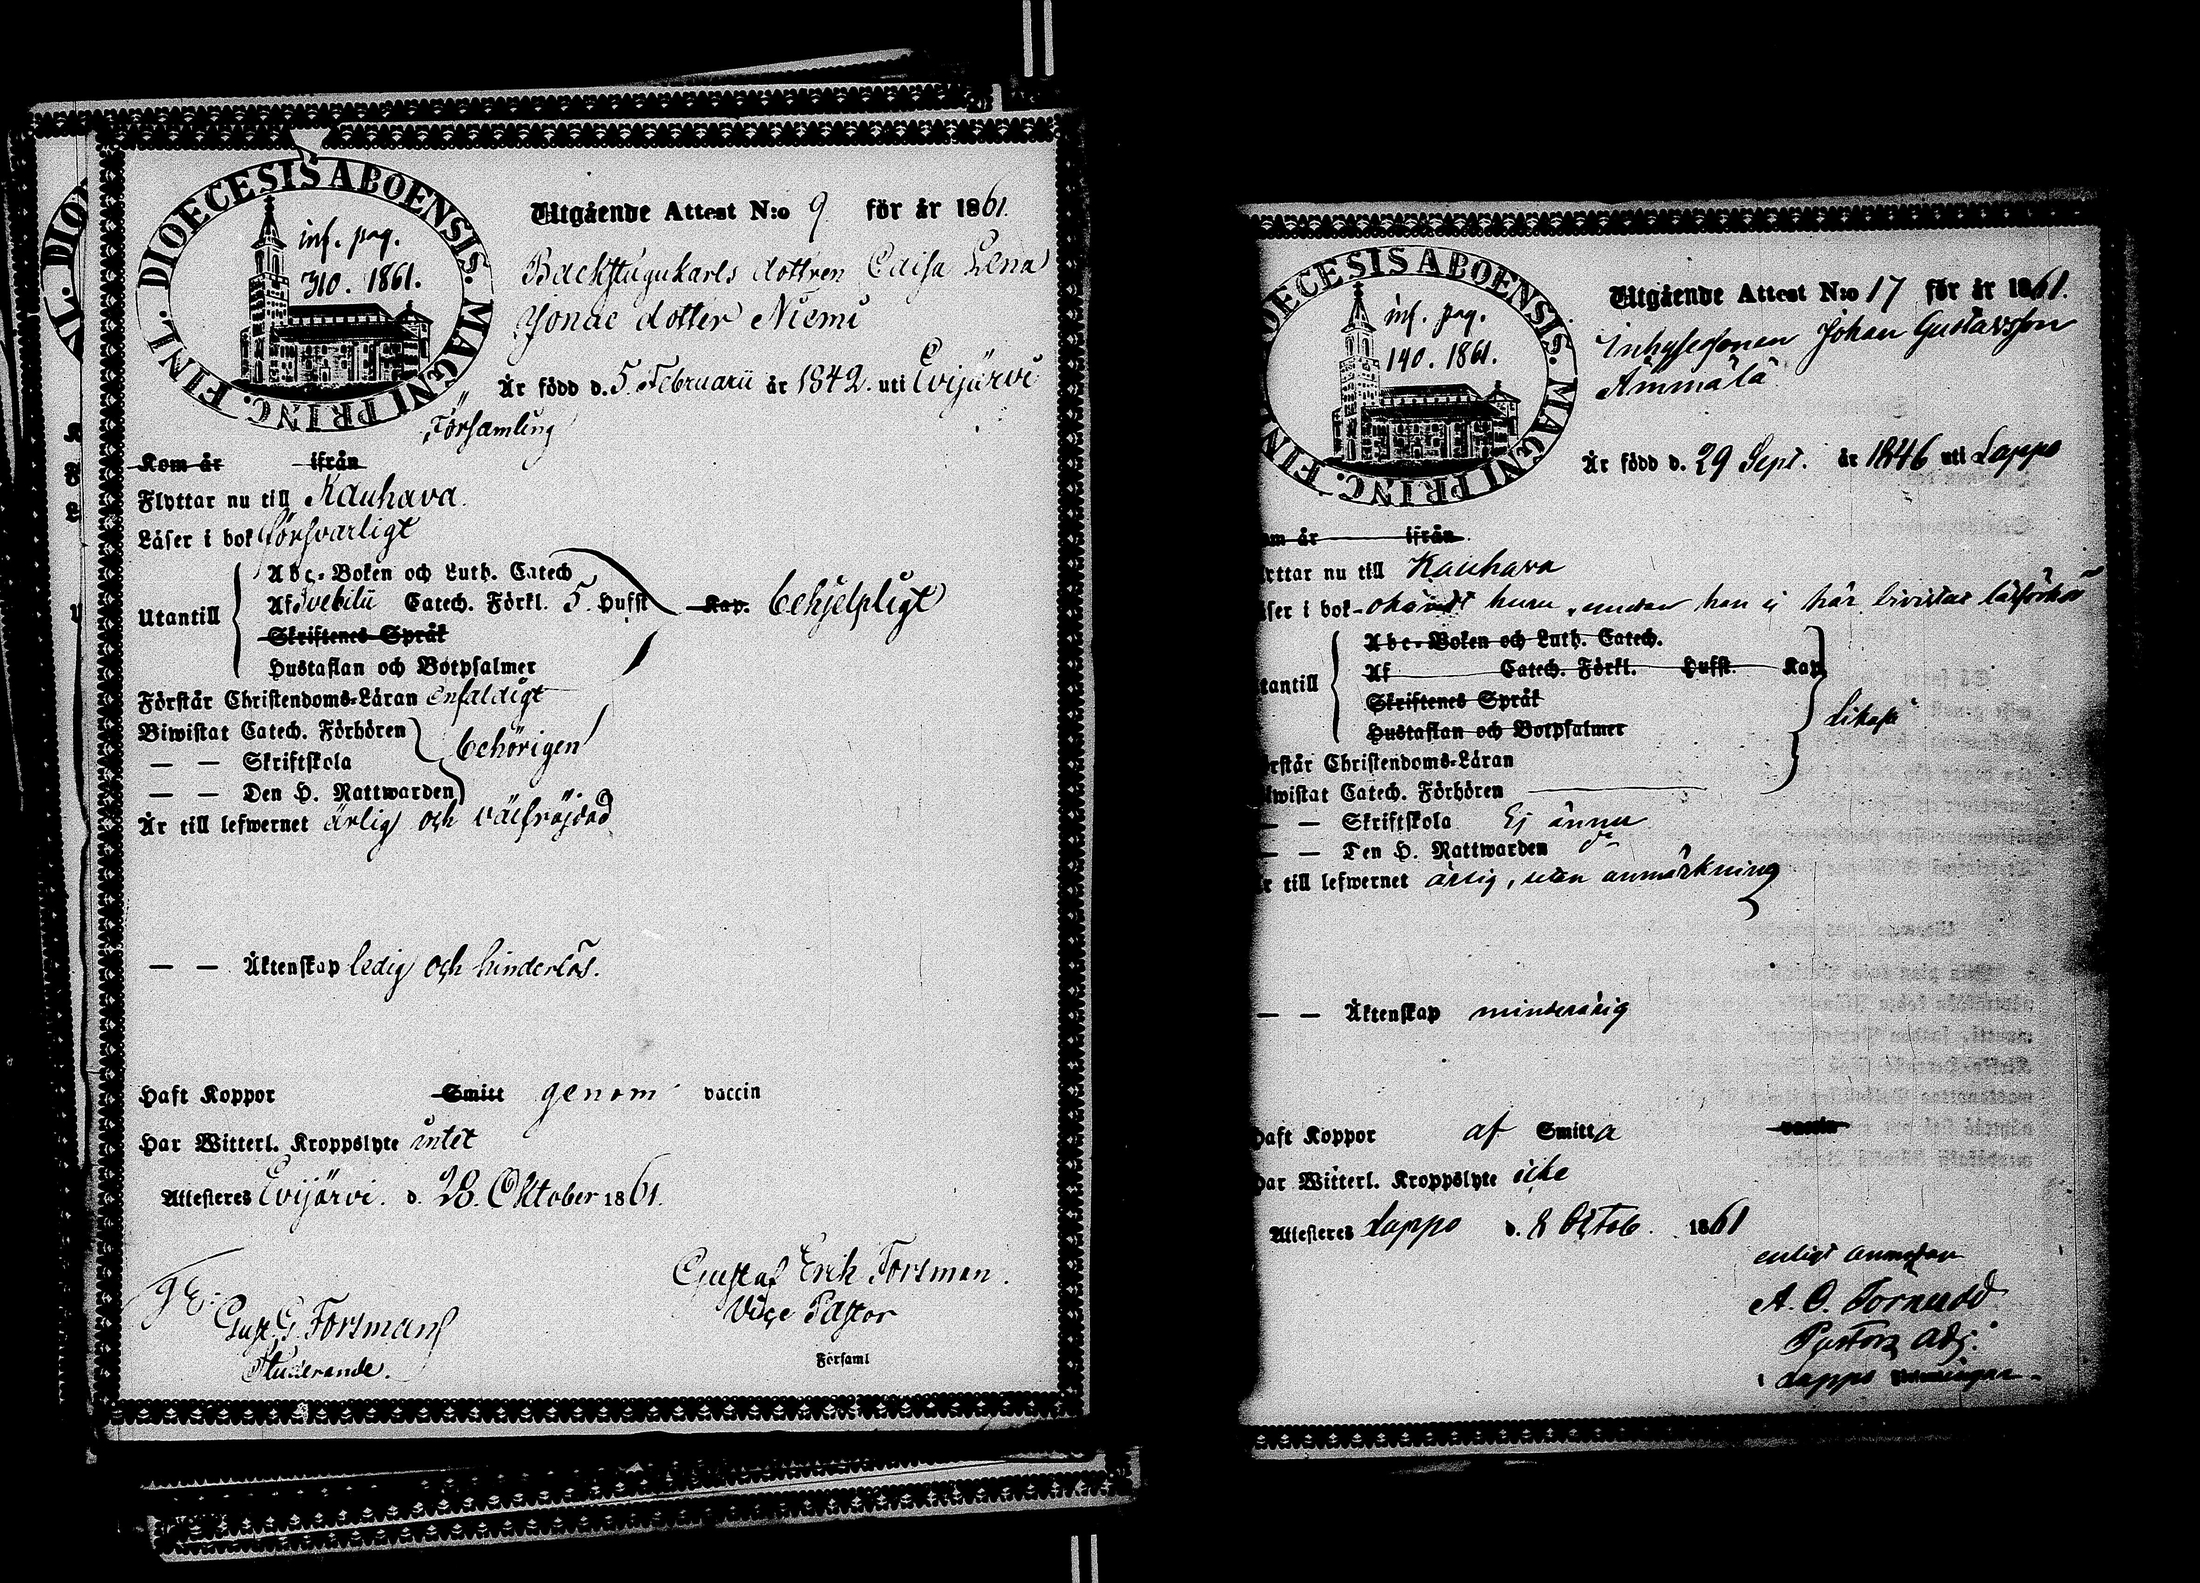 DIOECESIS ABOENSIS. MAGNI PRINC. FINL.
inf. pag.
310. 1861.
Utgående Attest N:o 9 för år 1861.
Backstugukarls dottren Caisa Lena
Jonae dotter Niemi
Är född d. 5 Februarii år 1842. uti Evijärvi
Församling
Kom år ifrån
Flyttar nu till Kauhava.
Läser i bok försvarligt
Utantill
Abc-Boken och Luth. Catech
Af Svebilii Catech. Förkl. 5. Hufst Kap. behjelpligt
Skriftenes Språk
Hustaflan och Botpsalmer
Förstår Christendoms-Läran enfaldigt
Biwistat Catech. Förhören
— — Skriftskola behörigen
— — Den H. Nattwarden
Är till lefwernet ärlig och välfräjdad
— — Äktenskap ledig och hinderlös.
Haft Koppor Smitt genom vaccin
Har Witterl. Kroppslyte intet
Attesteres Evijärvi. d. 28. Oktober 1861.
Gustaf Erik Forsman.
Vice Pastor
Församl
Gust. G. Forsman
Studerande.
DIOECESIS ABOENSIS. MAGNI PRINC. FIN
inf. pag.
140. 1861.
Utgående Attest N:o 17 för år 1861.
Inhysesonen Johan Gustavsson
Ämmälä
Är född d. 29 Sept. år 1846 uti Lappo
om år ifrån
ttar nu till Kauhava
ser i bok okändt huru, emedan han ej här bivistat läsförhör
tantill
Abc-Boken och Luth. Catech.
Af Catech. Förkl. Hufst. Kap
Skriftenes Språk
Hustaflan och Botpsalmer
Likaså
rstår Christendoms-Läran
iwistat Catech. Förhören
— — Skriftskola Ej ännu
— — Den H. Nattwarden do
r till lefwernet ärlig, utan anmärkning
— — Äktenskap minderårig
Haft Koppor af Smitta vaccin
Har Witterl. Kroppslyte icke
Attesteres Lappo d. 8 Octob. 1861
enligt
A. O. Törnudd
Pastors adj.
i Lappo